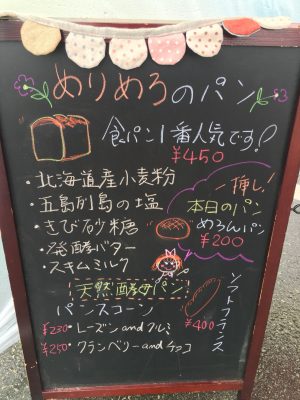 めりめろのパン
食パン1番人気です!
¥450
・北海道産小麦粉
・五島列島の塩
・きび砂糖
・発酵バター
・スキムミルク
一押し!
本日のパン
めろんパン
¥200
天然酵母パン
パンスコーン
¥230・レーズンandクルミ
¥250・クランベリーandチョコ
ソフトフランス
¥400